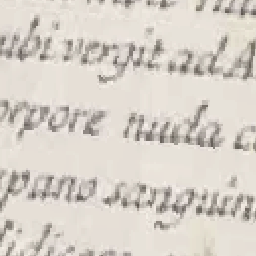 ubi vergit ad A
orpore nuda c
spano sanguin